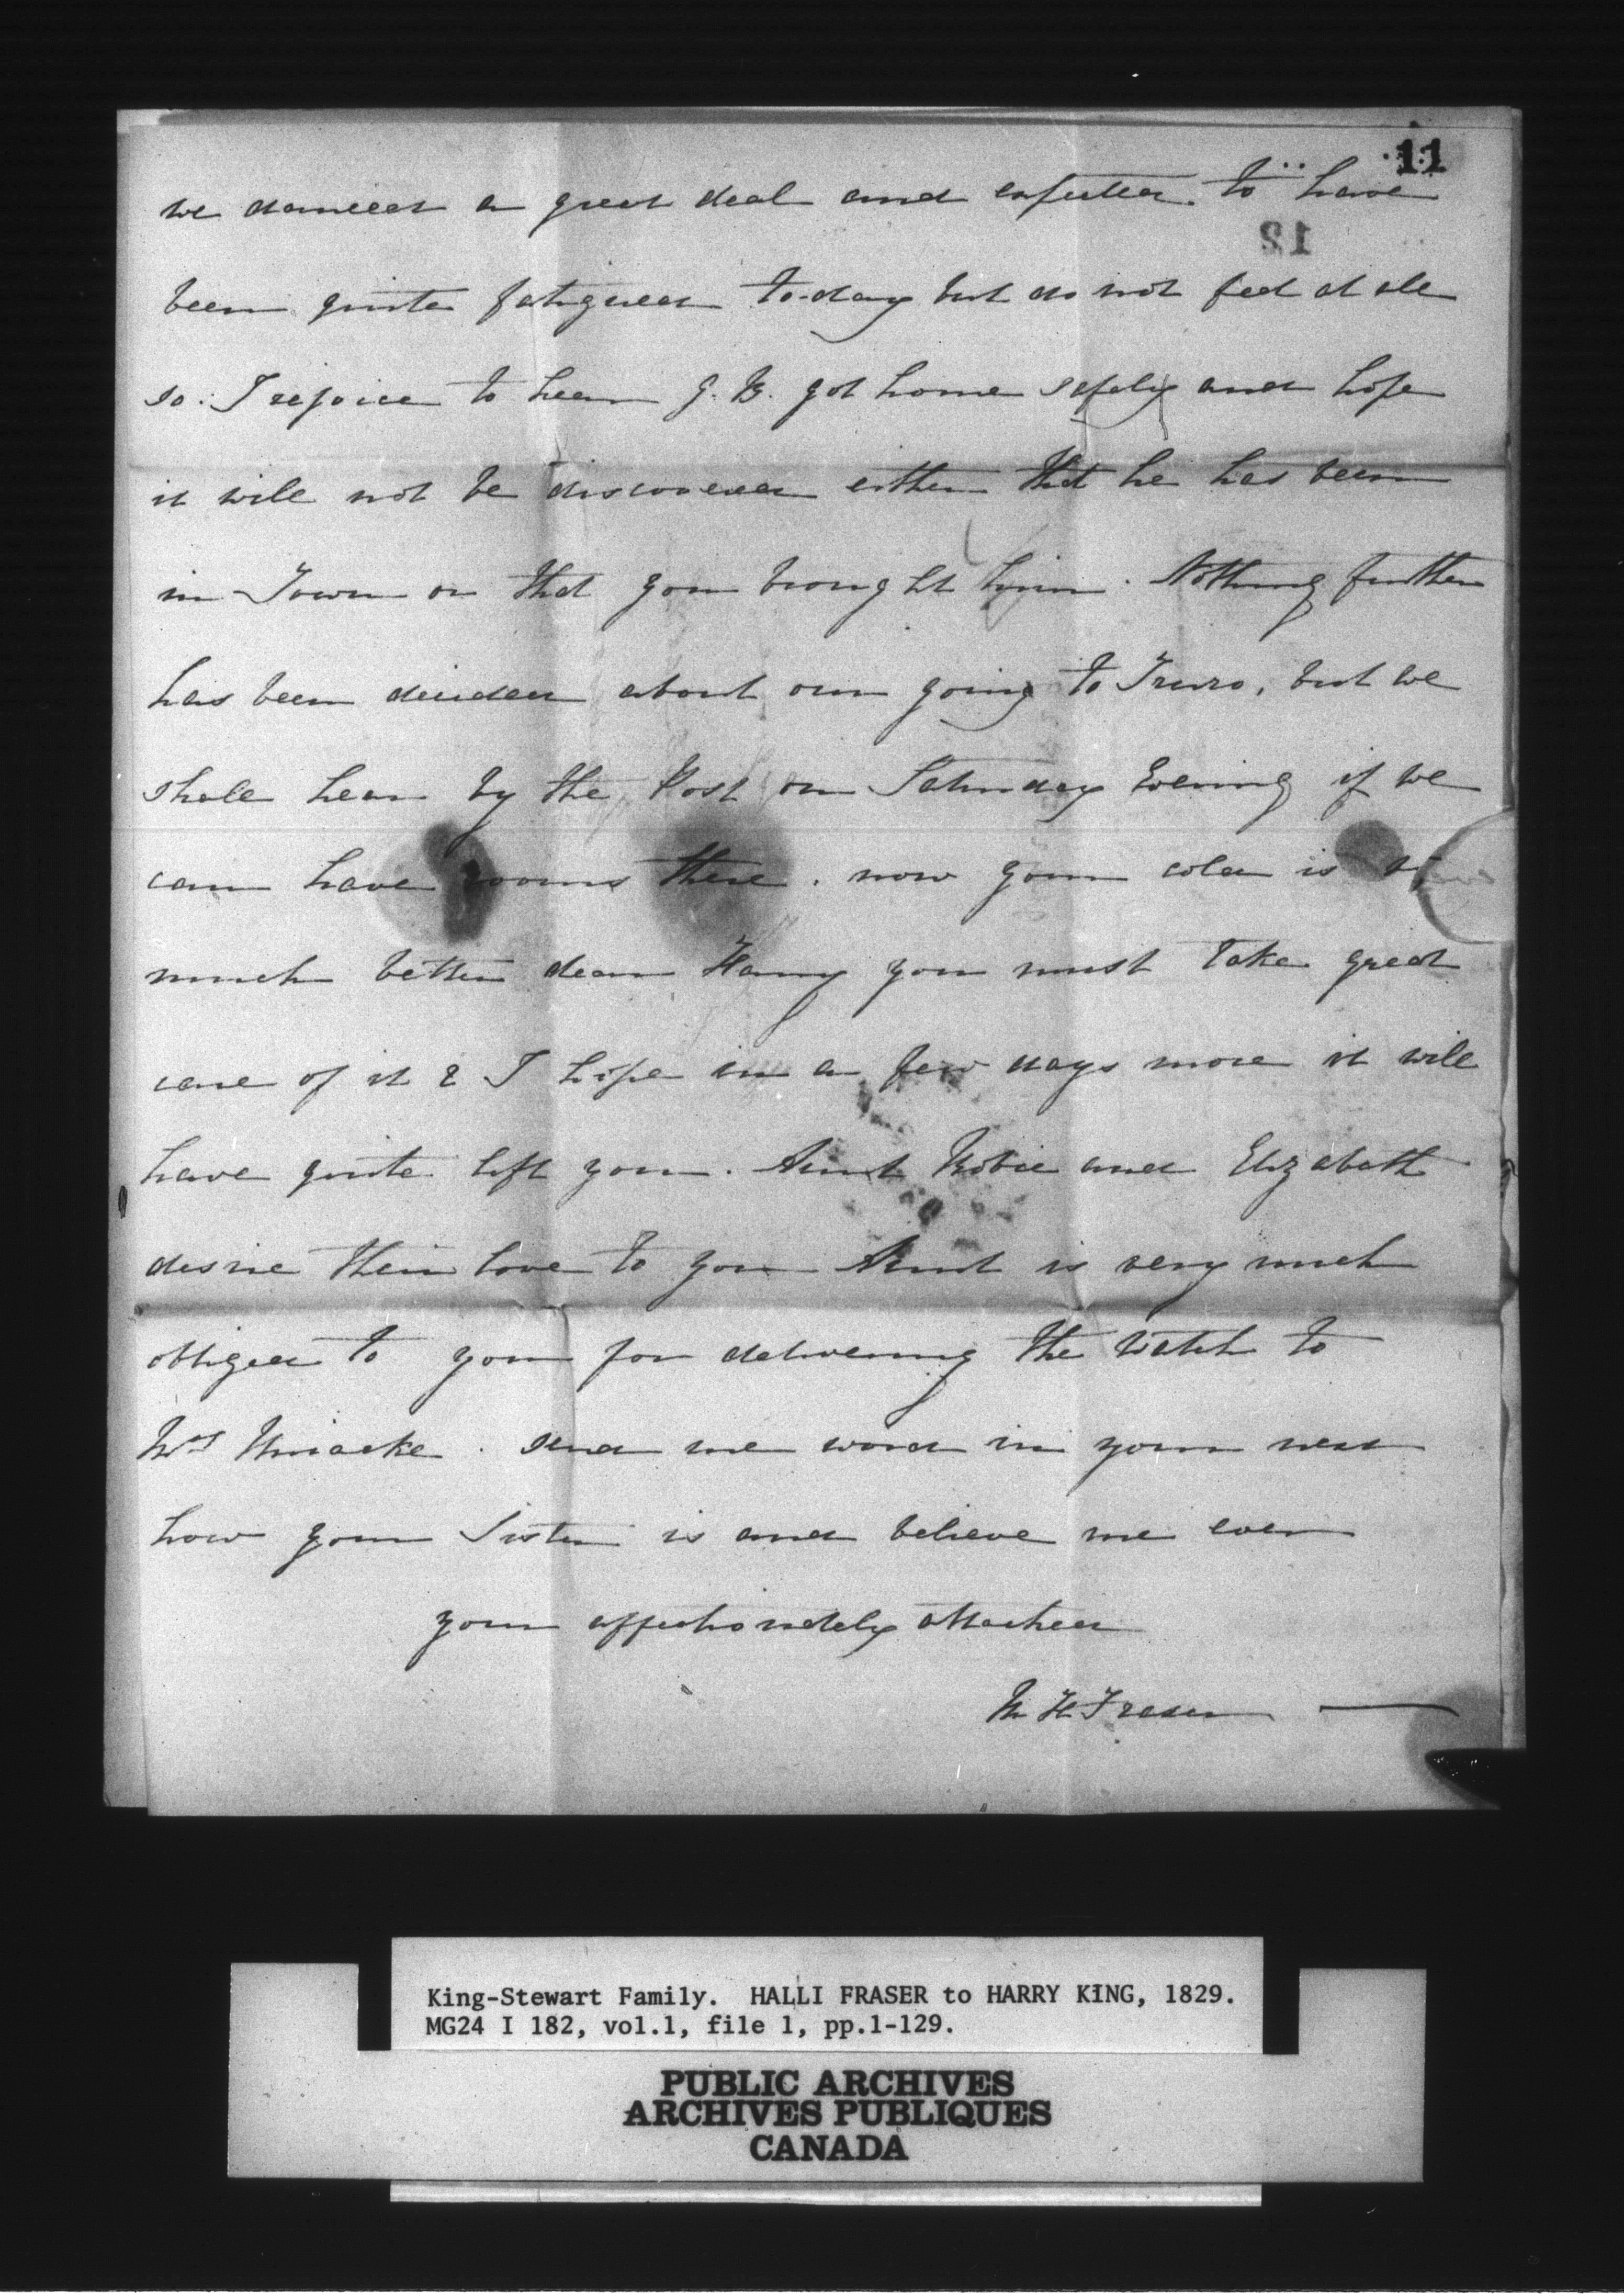 11
we danced a great deal and expected to have
12
been quite fatigued to-day but do not feel at all
so. I rejoice to hear J. B. got home safely and hope
it will not be discovered either that he has been
in Town or that you brought him. Nothing further
has been decided about our going to Truro, but we
shall hear by the Post on Saturday Evening if we
can have rooms there. now your cold is so
much better dear Harry you must take great
care of it & I hope in a few days more it will
have quite left you. Aunt Robie and Elizabeth
desire their love to you Aunt is very much
obliged to you for delivering the Watch to
Mrs Uniacke. send me word in your next
how your Sister is and believe me ever
your affectionately attached
H Fraser
King-Stewart Family. HALLI FRASER to HARRY KING, 1829.
MG24 I 182, vol.1, file 1, pp.1-129.
PUBLIC ARCHIVES
ARCHIVES PUBLIQUES
CANADA